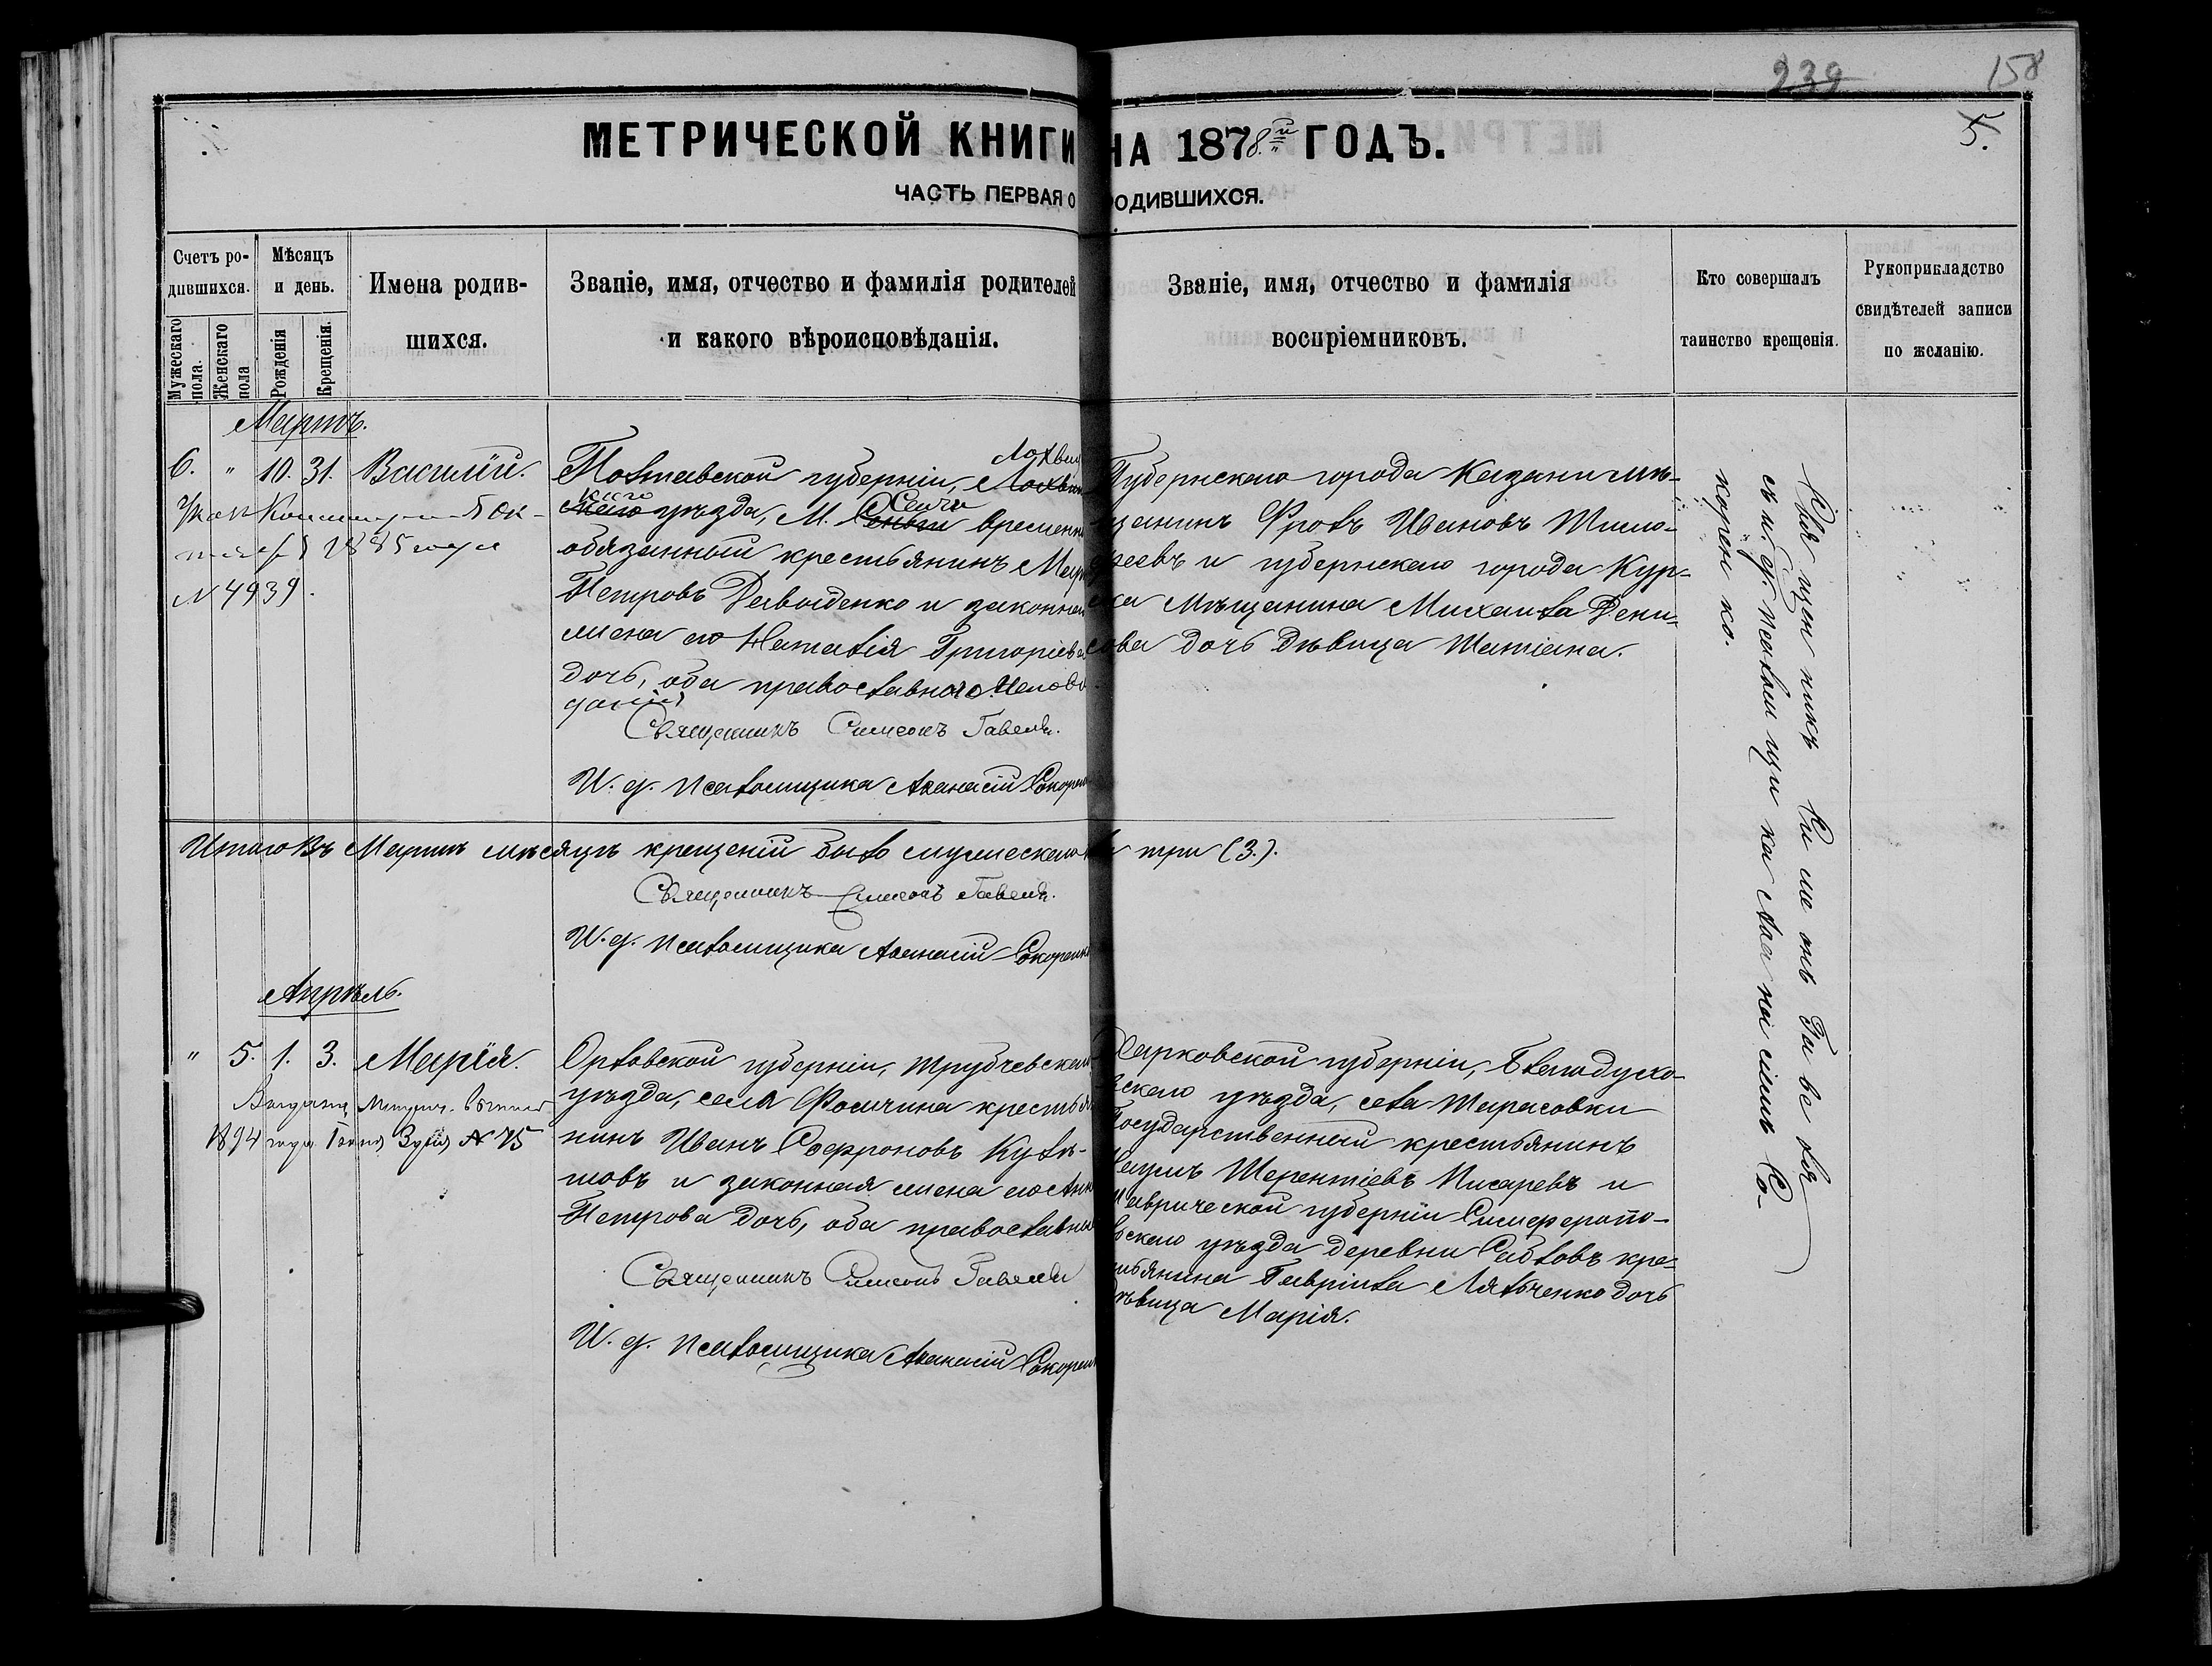 239
158
5.
МЕТРИЧЕСКОЙ КНИГИ НА 1878й ГОДЪ.
ЧАСТЬ ПЕРВАЯ О РОДИВШИХСЯ.
Счетъ ро-
дившихся.
Мужескаго
пола.
Женскаго
пола
Мѣсяцъ
и день.
Рожденія
Крещенія.
Имена родив-
шихся.
Званіе, имя, отчество и фамилія родителей
и какого вѣроисповѣданія.
Званіе, имя, отчество и фамилія
воспріемниковъ.
Кто совершалъ
таинство крещенія.
Рукоприкладство
свидѣтелей записи
по желанію.
Мартъ.
6. " 10. 31. Василій.
Указ Консисторіи 5 Ок-
тября 1885 года
N 4939.
Полтавской губерніи, Лохвиц
каго уѣзда, М. Сенчи временно
обязанный крестьянинъ
Петровъ Давиденко и законная
жена его Наталія Григоріева
дочь, оба православнаго исповѣ
данія
Священникъ Симеонъ Гавель.
И. д. псаломщика Аѳанасій Сокорен
Губернскаго города Казани мѣ-
щанинъ Фролъ Ивановъ Тимо-
феевъ и губернскаго города Кур-
ска Мѣщанина Михаила Дени-
сова дочь дѣвица Татіана.
Итого въ Мартѣ мѣсяцѣ крещеній было мужескаго три (3.).
Священникъ Симеонъ Гавель.
И. д. псаломщика Аѳанасій Сокоренк
Апрѣль.
" 5. 1. 3. Марія.
Выдана Метрич. выпись
1894 года Іюня 3 дня N 75
Орловской губерніи, Трубчевскаго
уѣзда, села Фомчина крестья
нинъ Иванъ Софроновъ Кулѣ-
шовъ и законная жена его Анна
Петрова дочь, оба православнаго
Священникъ Симеонъ Гавель
И. д. псаломщика Аѳанасій Сокорен
Харковской губерніи, Богодухо-
вскаго уѣзда, села Тарасовки
Государственный крестьянинъ
Наумъ Терентіевъ Писаревъ и
Таврической губерніи Симферопо-
льскаго уѣзда деревни Сабловъ кре-
стьянина Гавріила Лятченко дочь
дѣвица Марія.
Священникъ Симеонъ Гавель
съ и. д. псаломщика Аѳанасіемъ Со-
коренко.